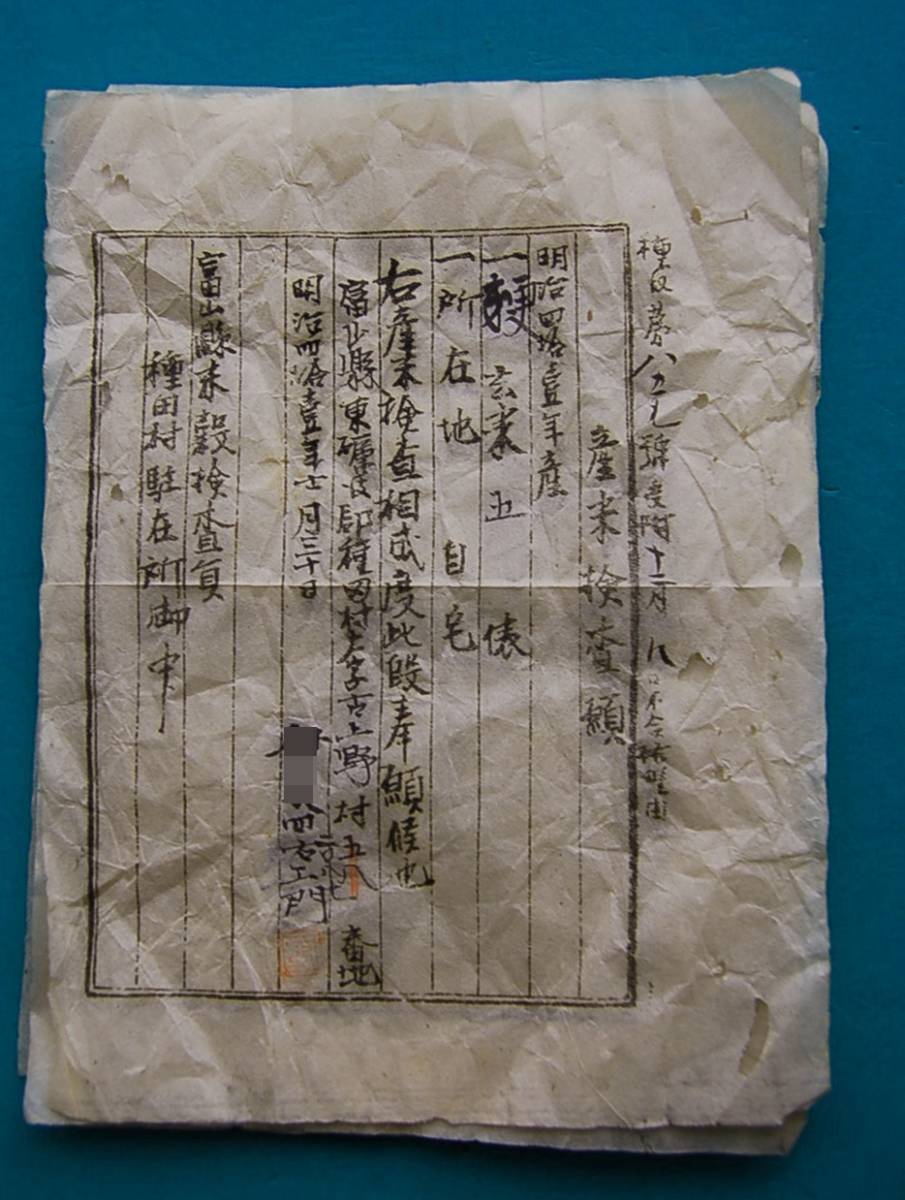 種収第八五九號受附十二月八日
産米検査願
明治四拾壹年産
一粳玄米五俵
一所在地自宅
右産米検査相成度此段奉願候也
富山縣東礪波郡種田村大字古上野村五八番地
明治四拾壹年十二月三十日
四右エ門
富山縣米穀検査員
種田村駐在所御中